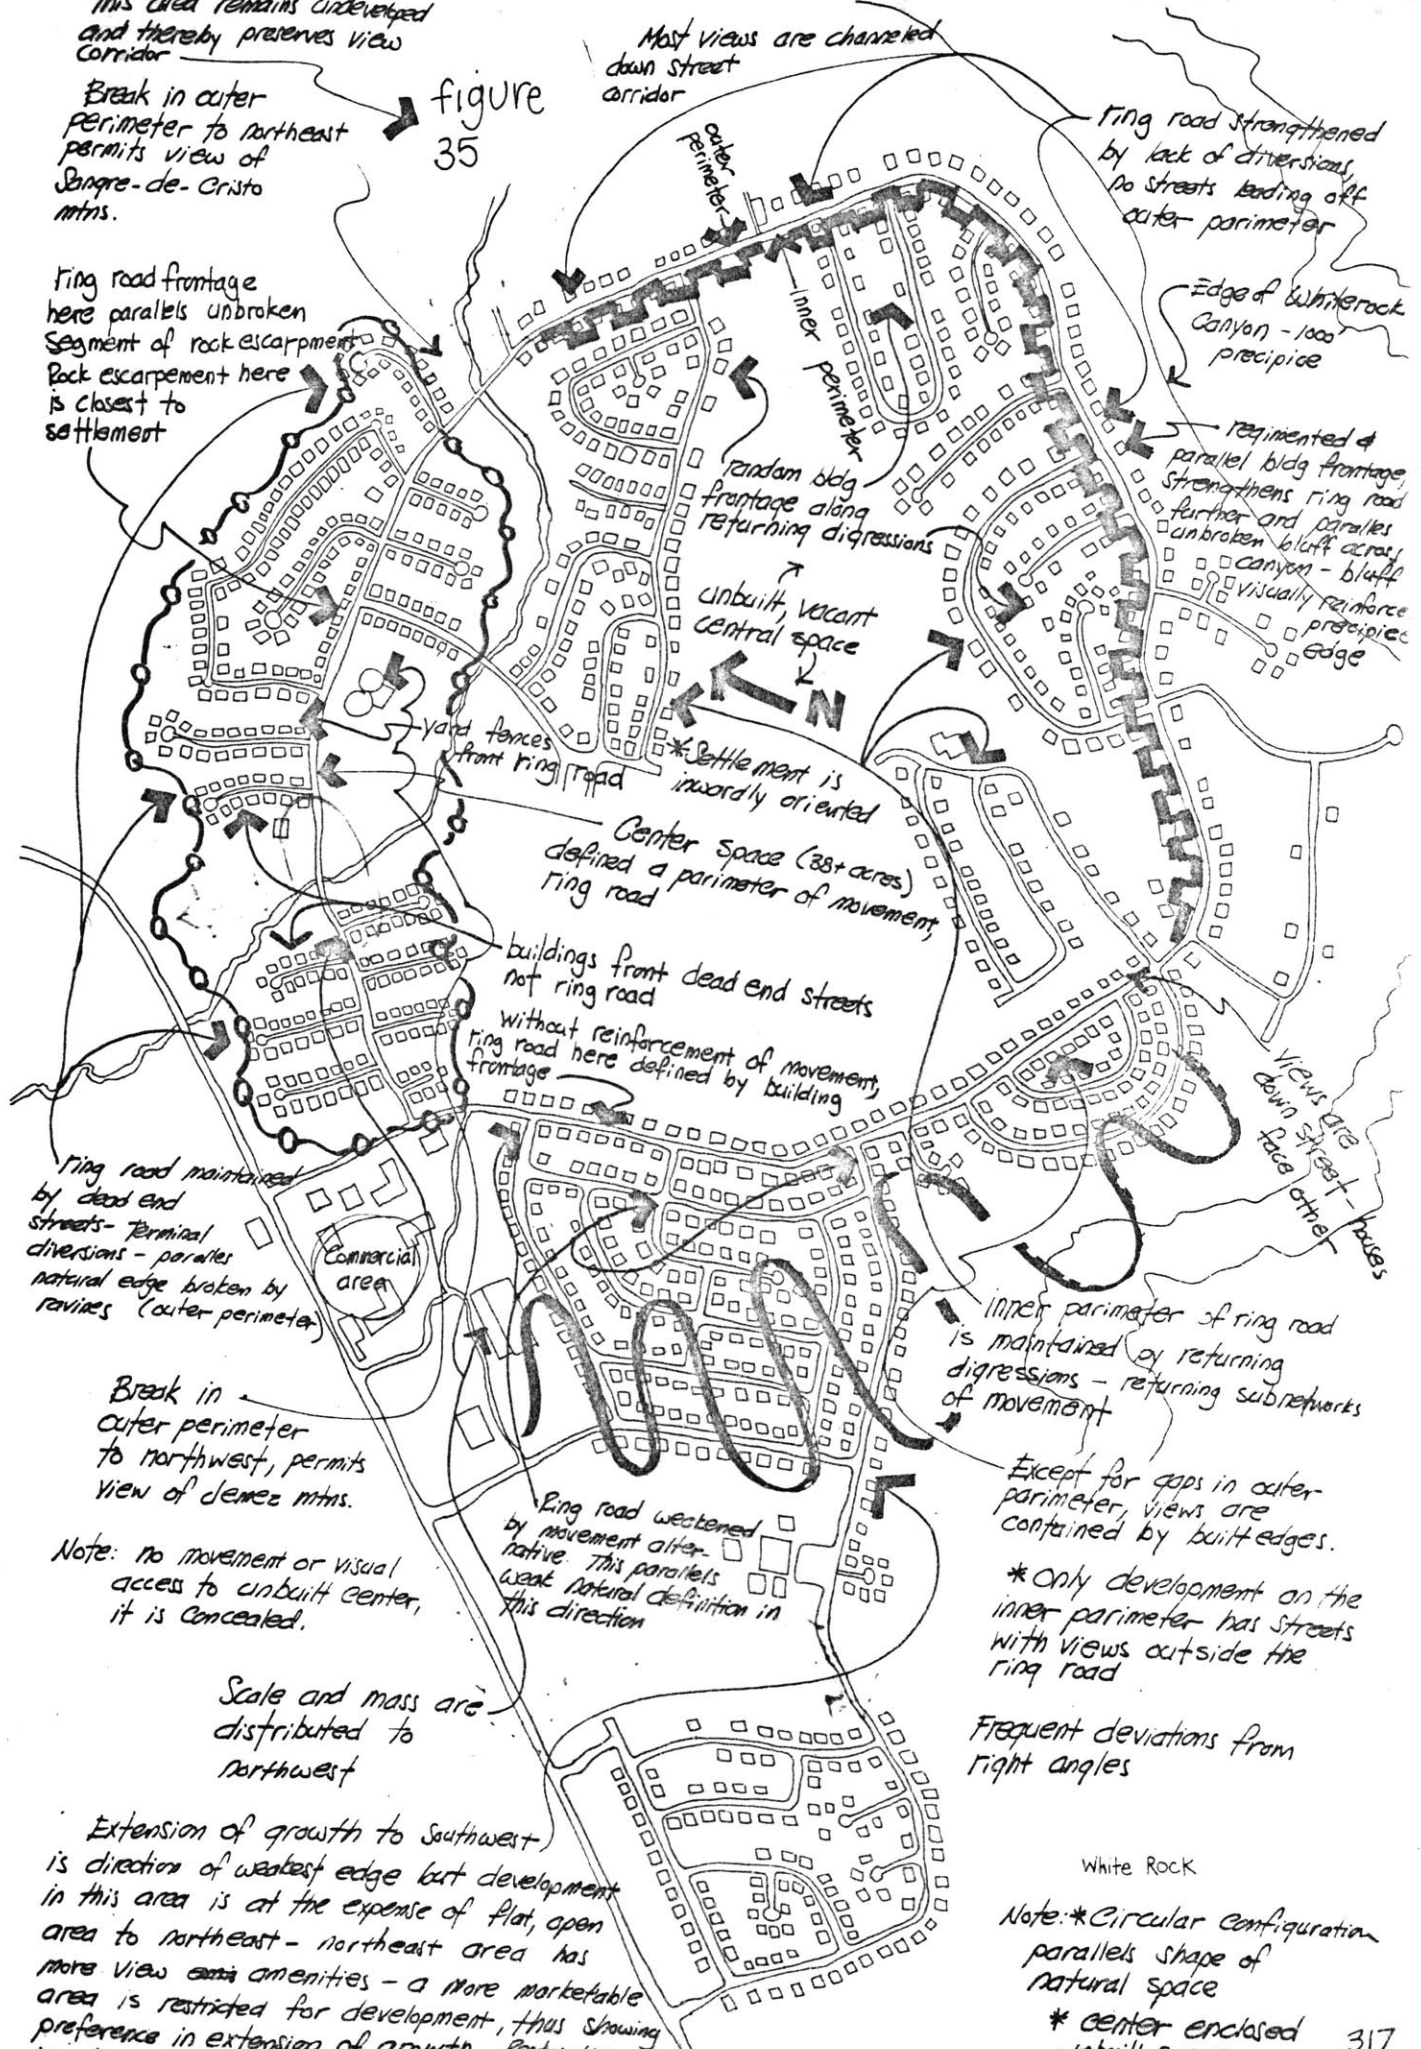 This area remains undeveloped
and thereby preserves view
corridor
Break in outer
perimeter to northeast
permits view of
Sangre-de-Cristo
mtns.
figure
35
Most views are channeled
down street
corridor
outer
perimeter
ring road strengthened
by lack of diversions,
no streets leading off
outer parimeter
ring road frontage
here parallels unbroken
segment of rock escarpment
Rock escarpement here
is closest to
settlement
inner perimeter
Edge of Whiterock
Canyon - 1000'
precipice
regimented &
parallel bldg frontage,
strengthens ring road
further and paralles
unbroken bluff across
canyon - bluff
visually reinforce
precipice
edge
random bldg
frontage along
returning digressions
unbuilt, vacant
central space
N
yard fences
front ring road
*Settlement is
inwardly oriented
Center space (38+ acres)
defined a parimeter of movement,
ring road
buildings front dead end streets
not ring road
without reinforcement of movement,
ring road here defined by building
frontage
views are
down street - houses
face other
ring road maintained
by dead end
streets - Terminal
diversions - paralles
natural edge broken by
ravines (outer perimeter)
Commercial
area
inner parimeter of ring road
is maintained by returning
digressions - returning subnetworks
of movement
Break in
outer perimeter
to northwest, permits
view of Jemez mtns.
Except for gaps in outer
parimeter, views are
contained by built edges.
Ring road weakened
by movement alter-
native. This parallels
weak natural definition in
this direction
Note: no movement or visual
access to unbuilt center,
it is concealed.
*only development on the
inner parimeter has streets
with views outside the
ring road
Scale and mass are
distributed to
northwest
Frequent deviations from
right angles
Extension of growth to Southwest
is direction of weakest edge but development
in this area is at the expense of flat, open
area to northeast - northeast area has
more view amenities - a more marketable
area is restricted for development, thus showing
preference in extension of growth
White Rock
Note: *Circular configuration
parallels shape of
natural space
* center enclosed
317